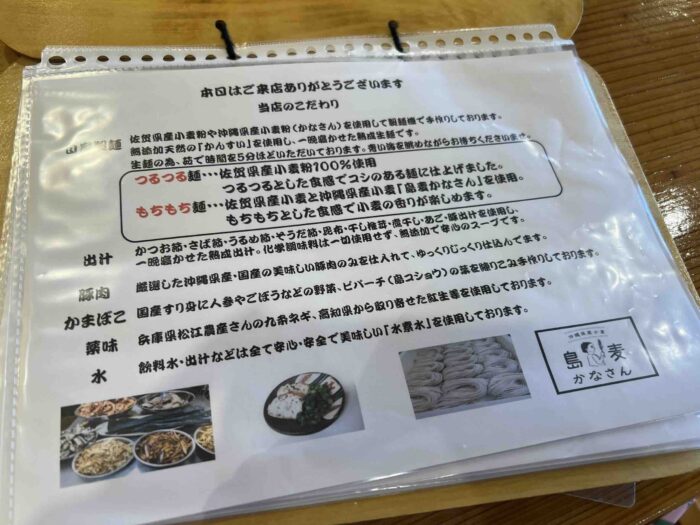 本日はご来店ありがとうございます
当店のこだわり
製麺 佐賀県産小麦粉や沖縄県産小麦粉(かなさん)を使用して製麺機で手作りしております。
無添加天然の「かんすい」を使用し、一晩寝かせた熟成生麺です。
生麺の為、茹で時間を5分ほどいただいております。青い海を眺めながらお待ちくださいませ。
つるつる麺…佐賀県産小麦粉100%使用
つるつるとした食感でコシのある麺に仕上げました。
もちもち麺…佐賀県産小麦と沖縄県産小麦「島麦かなさん」を使用。
もちもちとした食感で小麦の香りが楽しめます。
出汁 かつお節・さば節・うるめ節・そうだ節・昆布・干し椎茸・煮干し・あご・豚出汁を使用し、
一晩寝かせた熟成出汁。化学調味料は一切使用せず、無添加で安心のスープです。
豚肉 厳選した沖縄県産・国産の美味しい豚肉のみを仕入れて、ゆっくりじっくり仕込んでます。
かまぼこ 国産すり身に人参やごぼうなどの野菜、ピパーチ(島コショウ)の葉を練りこみ手作りしております。
薬味 兵庫県松江農産さんの九条ネギ、高知県から取り寄せた紅生姜を使用しております。
水 飲料水・出汁などは全て安心・安全で美味しい「水素水」を使用しております。
沖縄県産小麦
島麦
かなさん